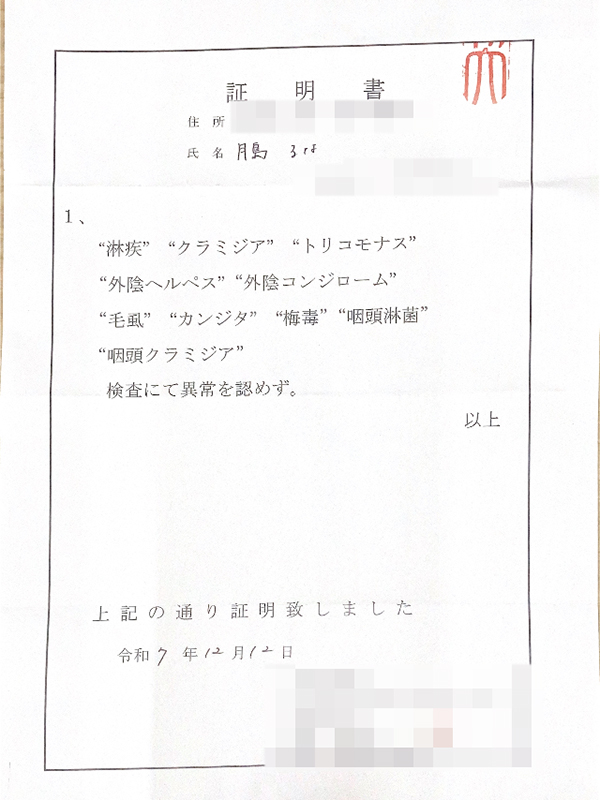 証明書
住所
氏名
1、
“淋疾” “クラミジア” “トリコモナス”
“外陰ヘルペス” “外陰コンジローム”
“毛虱” “カンジタ” “梅毒” “咽頭淋菌”
“咽頭クラミジア”
検査にて異常を認めず。
以上
上記の通り証明致しました
令和7年12月12日